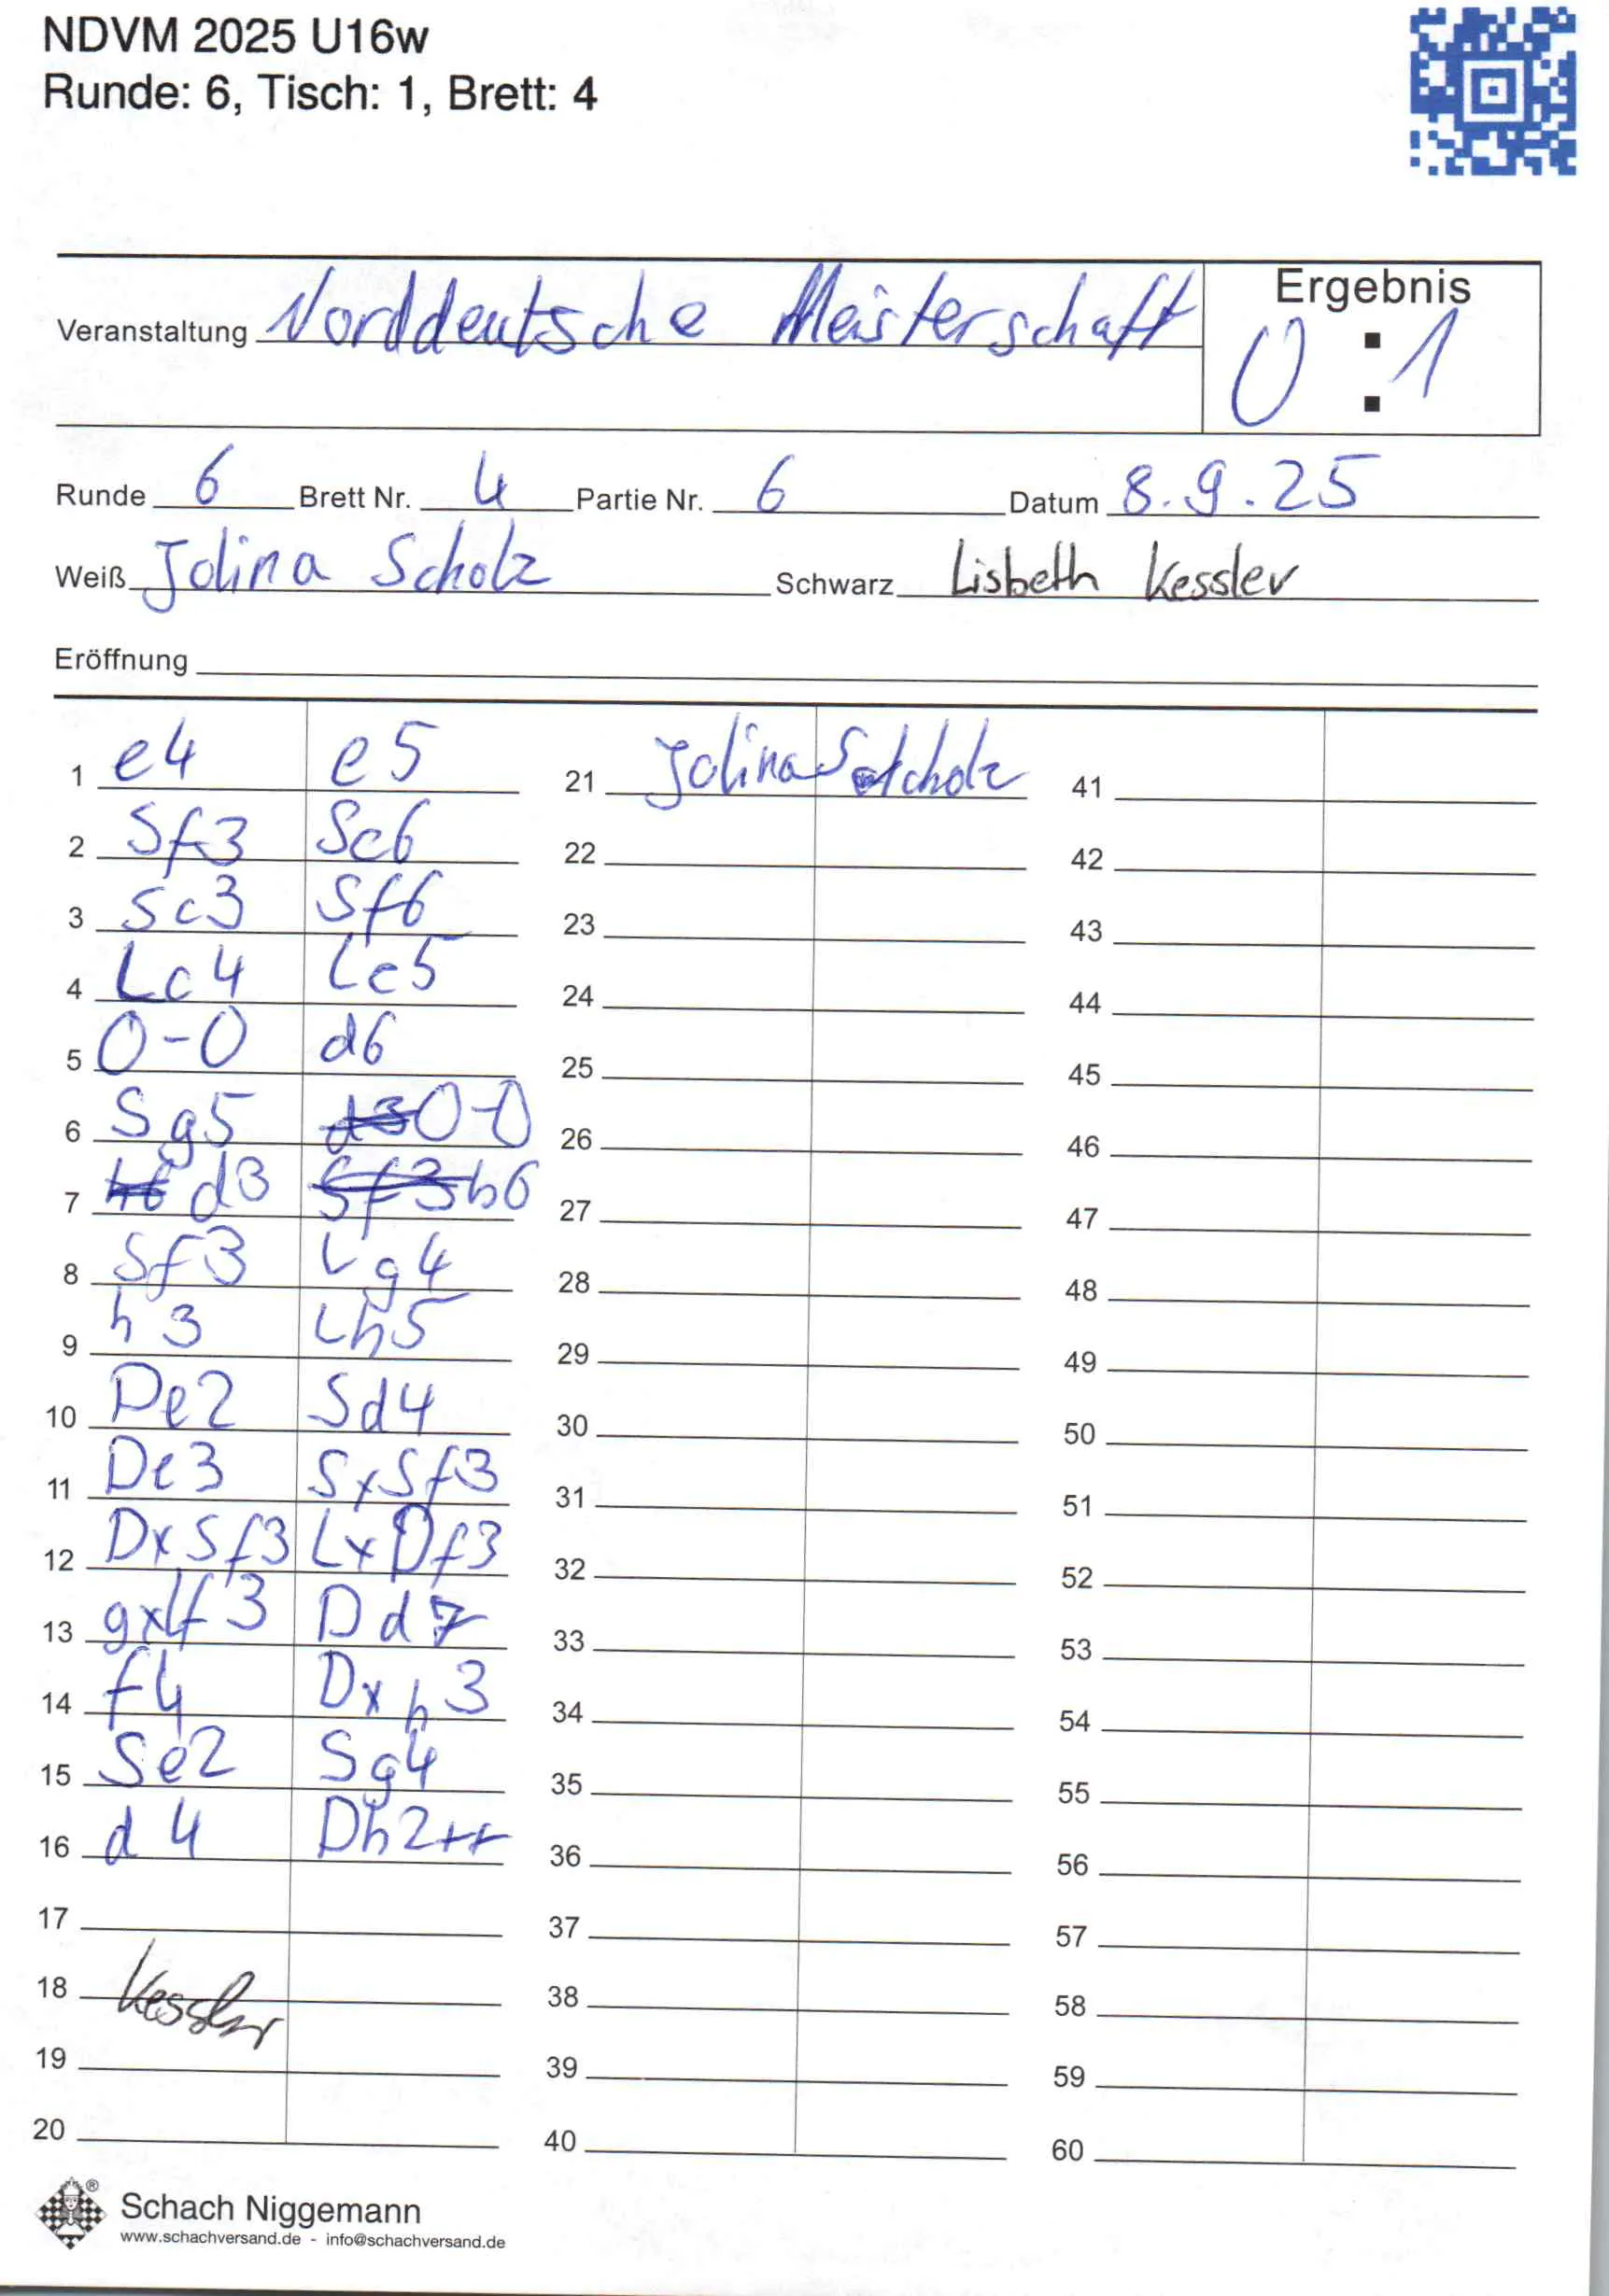 NDVM 2025 U16w
Runde: 6, Tisch: 1, Brett: 4
Ergebnis
Veranstaltung Norddeutsche Meisterschaft 0 : 1
Runde 6 Brett Nr. 4 Partie Nr. 6 Datum 8.9.25
Weiß Jolina Scholz Schwarz Lisbeth Kessler
Eröffnung
1 e4 e5 21 Jolina Scholz 41
2 Sf3 Sc6 22 42
3 Sc3 Sf6 23 43
4 Lc4 Lc5 24 44
5 0-0 d6 25 45
6 Sg5 d3 0-0 26 46
7 h6 d3 Sf3 h6 27 47
8 Sf3 Lg4 28 48
9 h3 Lh5 29 49
10 De2 Sd4 30 50
11 De3 SxSf3 31 51
12 DxSf3 LxDf3 32 52
13 gxLf3 Dd7 33 53
14 f4 Dxh3 34 54
15 Se2 Sg4 35 55
16 d4 Dh2++ 36 56
17 37 57
18 Kessler 38 58
19 39 59
20 40 60
Schach Niggemann
www.schachversand.de - info@schachversand.de